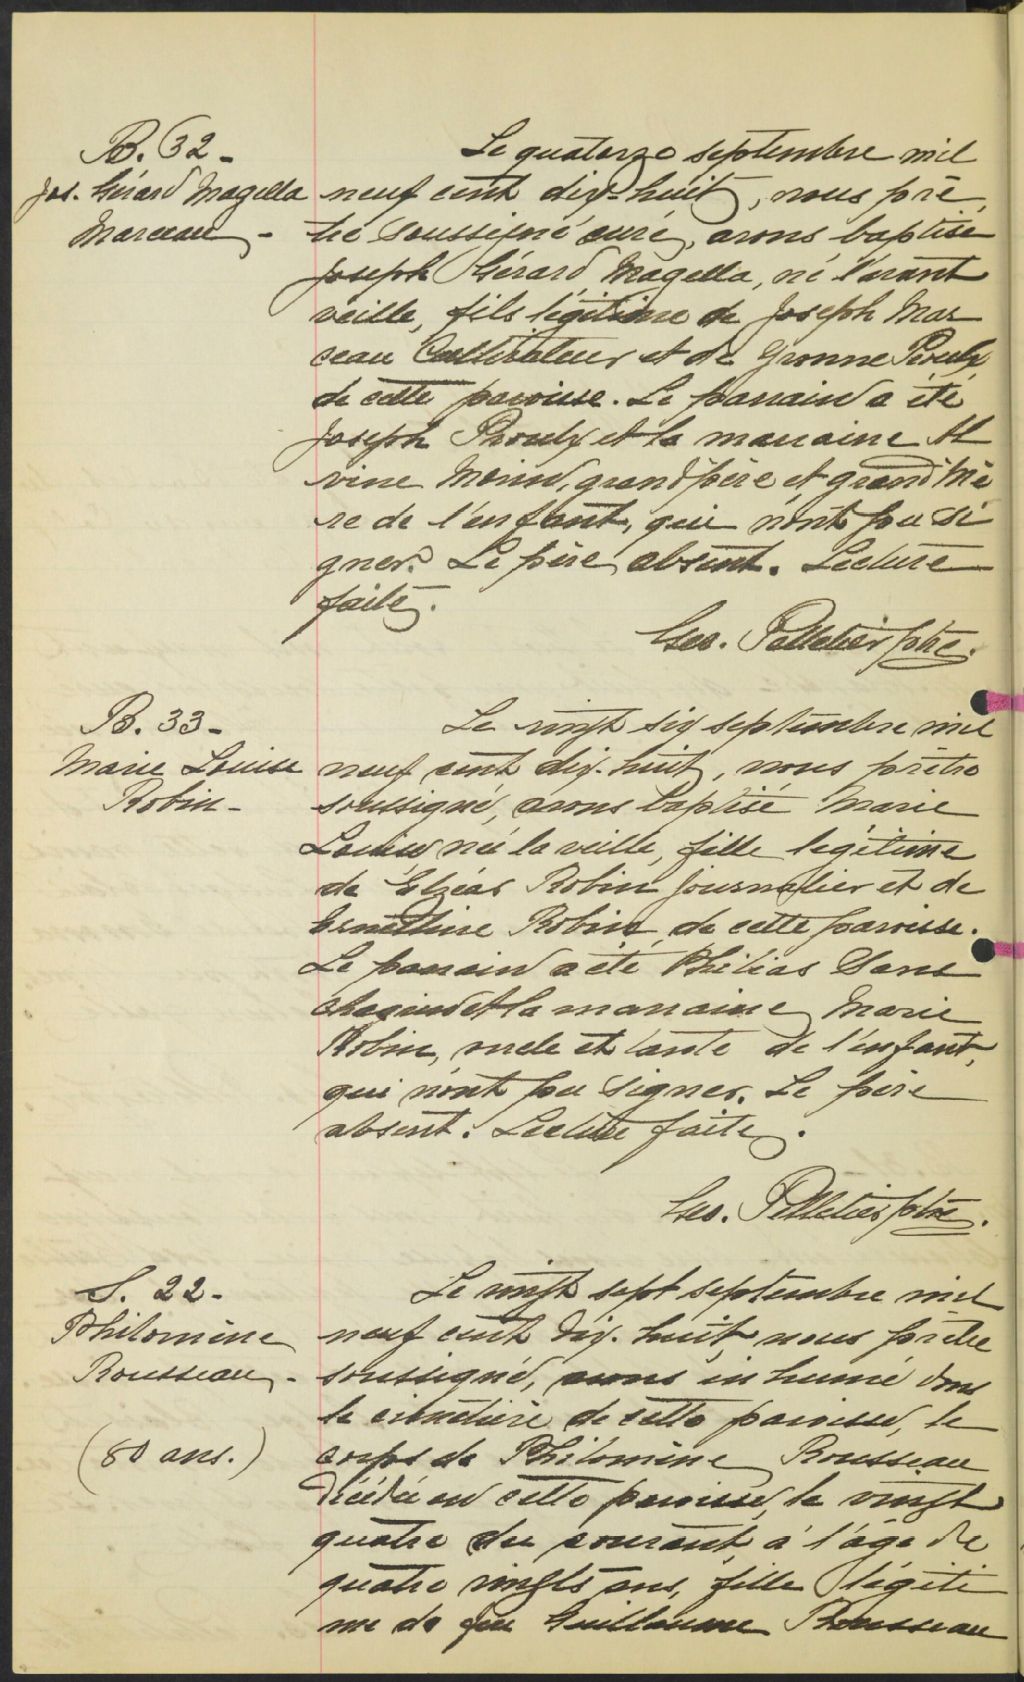 B. 32 -
Jos. Gérard Magella
Marceau -
Le quatorze septembre mil
neuf cent dix-huit, nous prê
tre soussigné curé, avons baptisé
Joseph Gérard Magella, né l'avant
veille, fils légitime de Joseph Mar
ceau Cultivateur et de Yvonne Proulx
de cette paroisse. Le parrain a été
Joseph Proulx et la marraine Al
vine Morin, grand'père et grand'mè
re de l'enfant, qui n'ont pu si
gner. Le père absent. Lecture
faite.
Geo. Pelletier ptre.
B. 33 -
Marie Louise
Robin -
Le vingt six septembre mil
neuf cent dix-huit, nous prêtre
soussigné, avons baptisé Marie
Louise née la veille, fille légitime
de Elzéar Robin journalier et de
Robin de cette paroisse.
Le parrain a été Philias Sans
chagrin et la marraine Marie
Robin, oncle et tante de l'enfant,
qui n'ont pu signer. Le père
absent. Lecture faite.
Geo. Pelletier ptre.
S. 22 -
Philomène
Rousseau -
(80 ans.)
Le vingt sept septembre mil
neuf cent dix-huit, nous prêtre
soussigné, avons inhumé dans
le cimetière de cette paroisse, le
corps de Philomène Rousseau
décédée en cette paroisse, le vingt
quatre du courant, à l'âge de
quatre vingts ans, fille légiti
me de feu Guillaume Rousseau